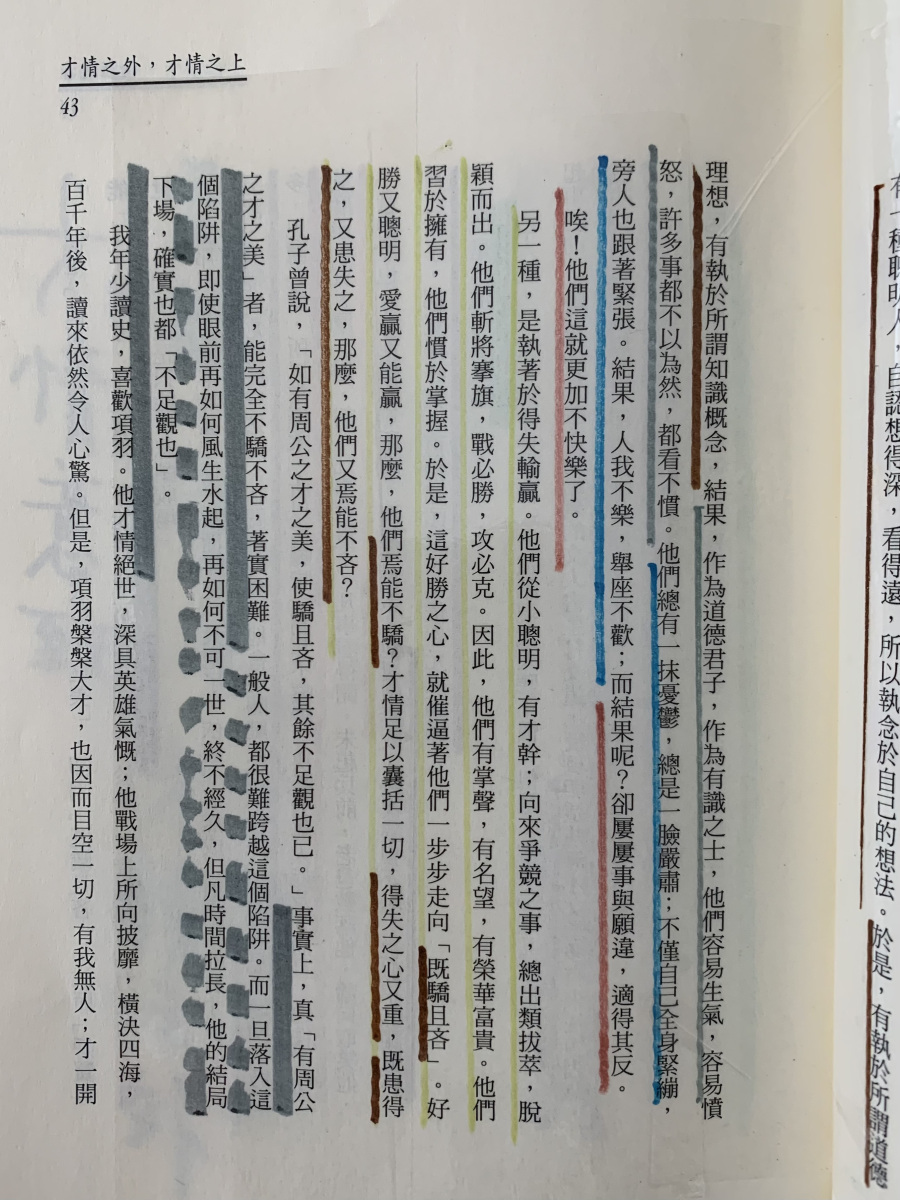 有一種聰明人，自認想得深，看得遠，所以執念於自己的想法。於是，有執於所謂道德
才情之外，才情之上
43
理想，有執於所謂知識概念，結果，作為道德君子，作為有識之士，他們容易生氣，容易憤
怒，許多事都不以為然，都看不慣。他們總有一抹憂鬱，總是一臉嚴肅；不僅自己全身緊繃，
旁人也跟著緊張。結果，人我不樂，舉座不歡；而結果呢？卻屢屢事與願違，適得其反。
唉！他們這就更加不快樂了。
另一種，是執著於得失輸贏。他們從小聰明，有才幹；向來爭競之事，總出類拔萃，脫
穎而出。他們斬將搴旗，戰必勝，攻必克。因此，他們有掌聲，有名望，有榮華富貴。他們
習於擁有，他們慣於掌握。於是，這好勝之心，就催逼著他們一步步走向「既驕且吝」。好
勝又聰明，愛贏又能贏，那麼，他們焉能不驕？才情足以囊括一切，得失之心又重，既患得
之，又患失之，那麼，他們又焉能不吝？
孔子曾說，「如有周公之才之美，使驕且吝，其餘不足觀也已。」事實上，真「有周公
之才之美」者，能完全不驕不吝，著實困難。一般人，都很難跨越這個陷阱。而一旦落入這
個陷阱，即使眼前再如何風生水起，再如何不可一世，終不經久，但凡時間拉長，他的結局
下場，確實也都「不足觀也」。
我年少讀史，喜歡項羽。他才情絕世，深具英雄氣慨；他戰場上所向披靡，橫決四海，
百千年後，讀來依然令人心驚。但是，項羽槃槃大才，也因而目空一切，有我無人；才一開